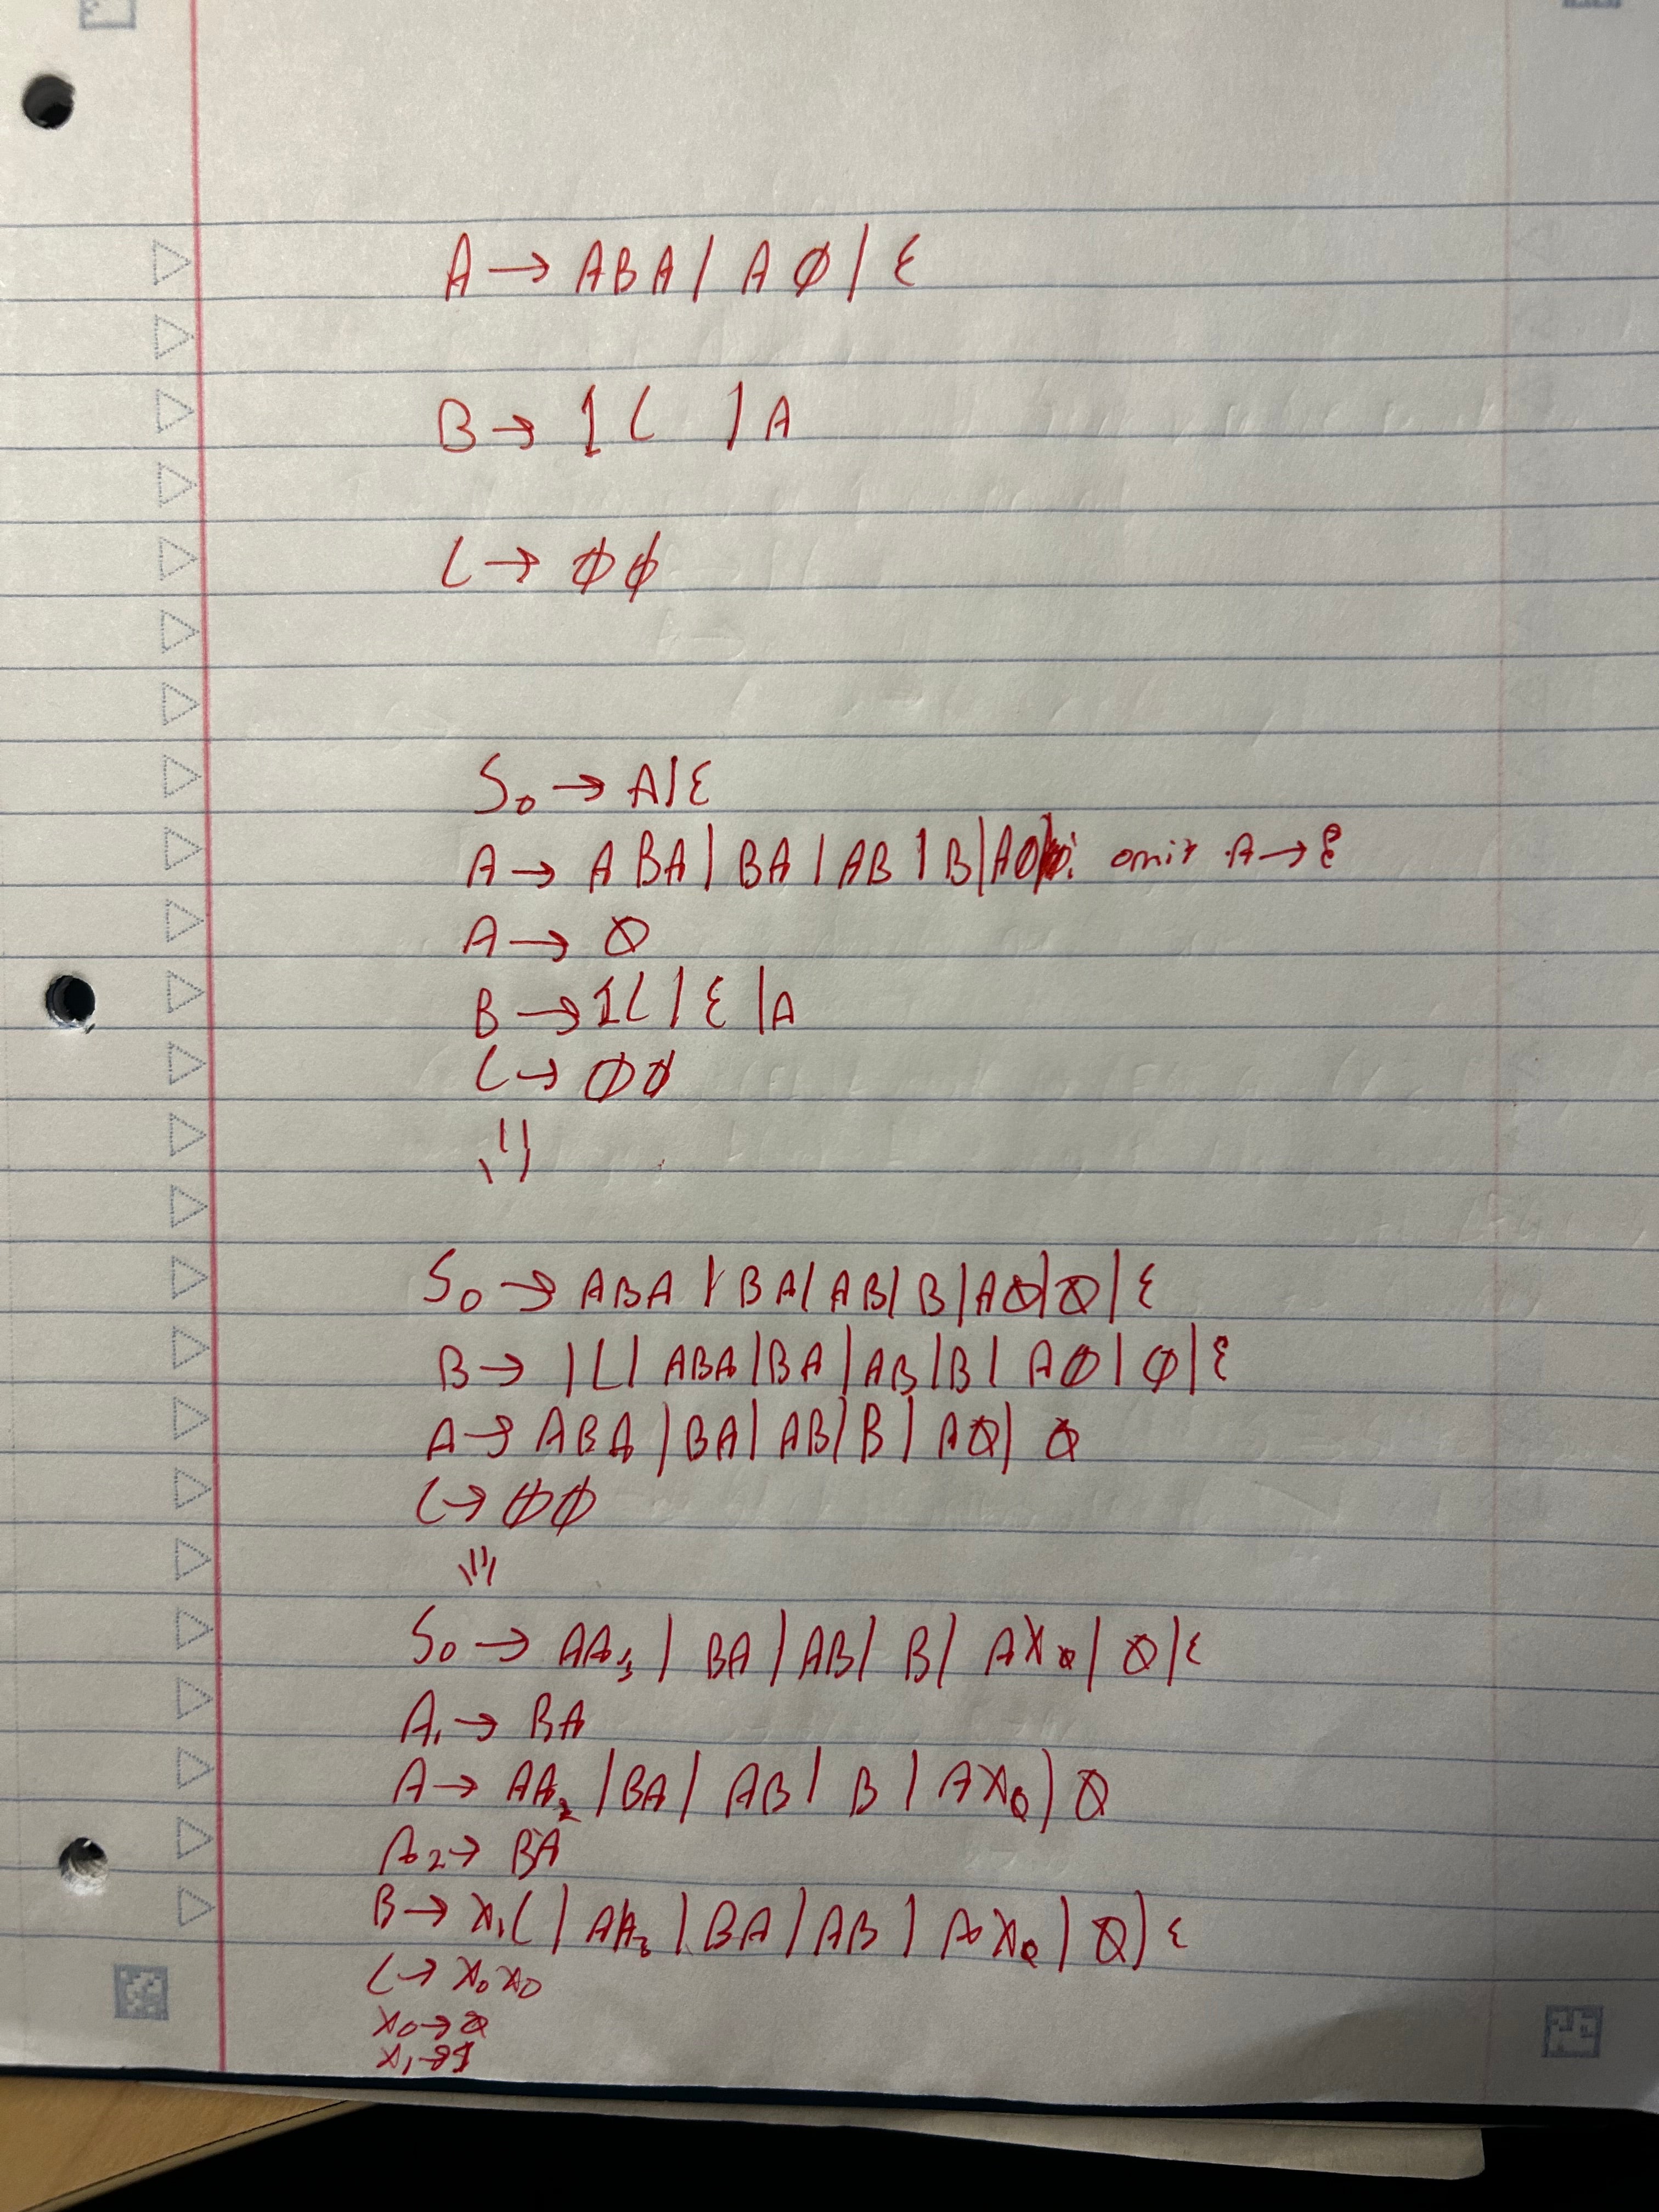 A → ABA | A0 | ε
B → 1C | A
C → 00
S₀ → A | ε
A → ABA | BA | AB | B | A0 omit A → ε
A → 0
B → 1C | ε | A
C → 00
S₀ → ABA | BA | AB | B | A0 | 0 | ε
B → 1C | ABA | BA | AB | B | A0 | 0 | ε
A → ABA | BA | AB | B | A0 | 0
C → 00
S₀ → AA₁ | BA | AB | B | AX₀ | 0 | ε
A₁ → BA
A → AA₂ | BA | AB | B | AX₀ | 0
A₂ → BA
B → X₁C | AA₃ | BA | AB | AX₀ | 0 | ε
C → X₀X₀
X₀ → 0
X₁ → 1